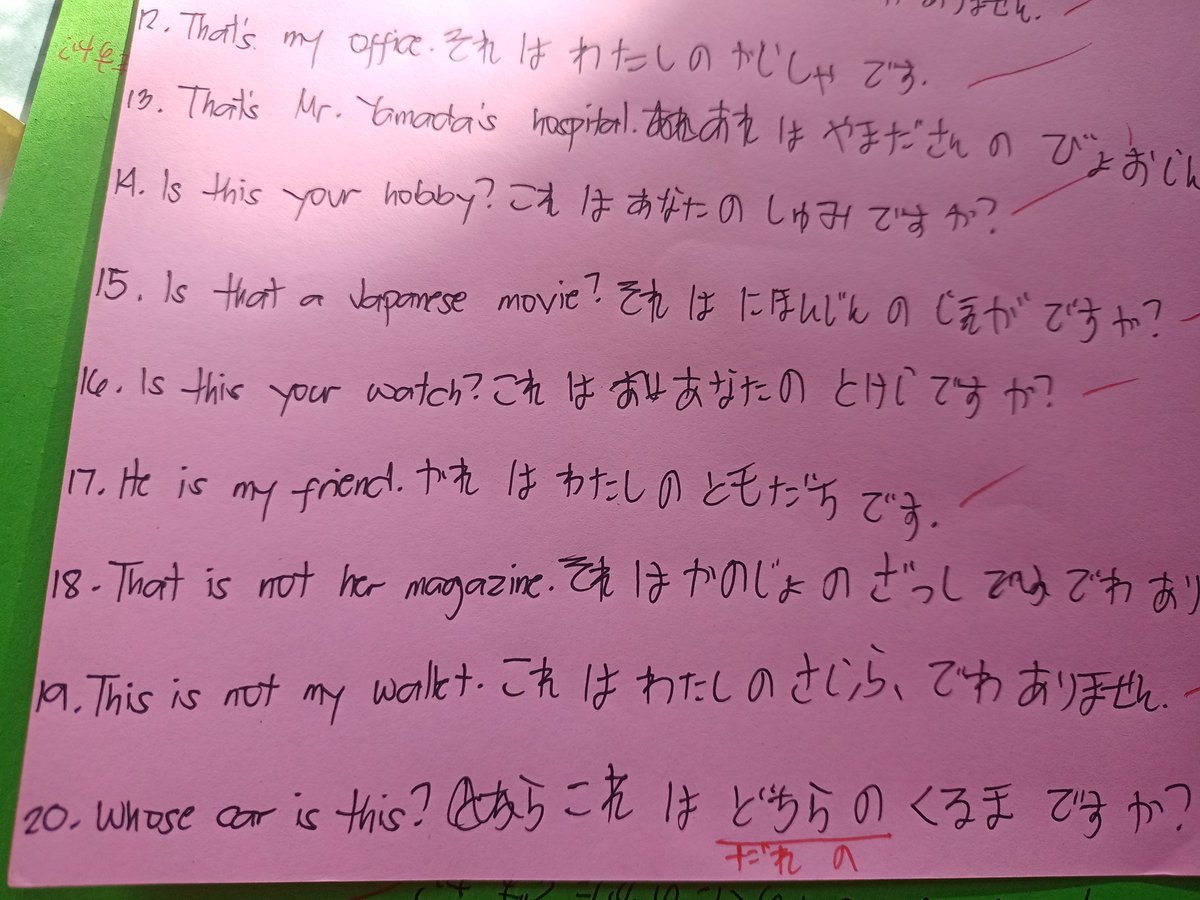 ありません.
12. That's my office. それ は わたし の かじしゃ です.
13. That's Mr. Yamada's hospital. あれ は やまださん の びよおじん
14. Is this your hobby? これ は あなた の しゅみ ですか?
15. Is that a Japanese movie? それ は にほんじん の じえが ですか?
16. Is this your watch? これ は あなた の とけじ ですか?
17. He is my friend. かれ は わたし の ともだち です.
18. That is not her magazine. それ は かのじょ の ざっし でわ あり
19. This is not my wallet. これ は わたし の さじら、でわ ありません.
20. Whose car is this? これ は どちら の くるま ですか?
だれ の